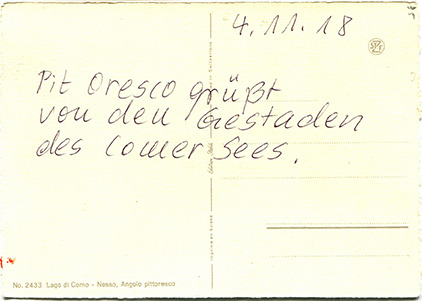 4.11.18
Pit Oresco grüßt
von den Gestaden
des Comer Sees.
No. 2433 Lago di Como - Nesso, Angolo pittoresco